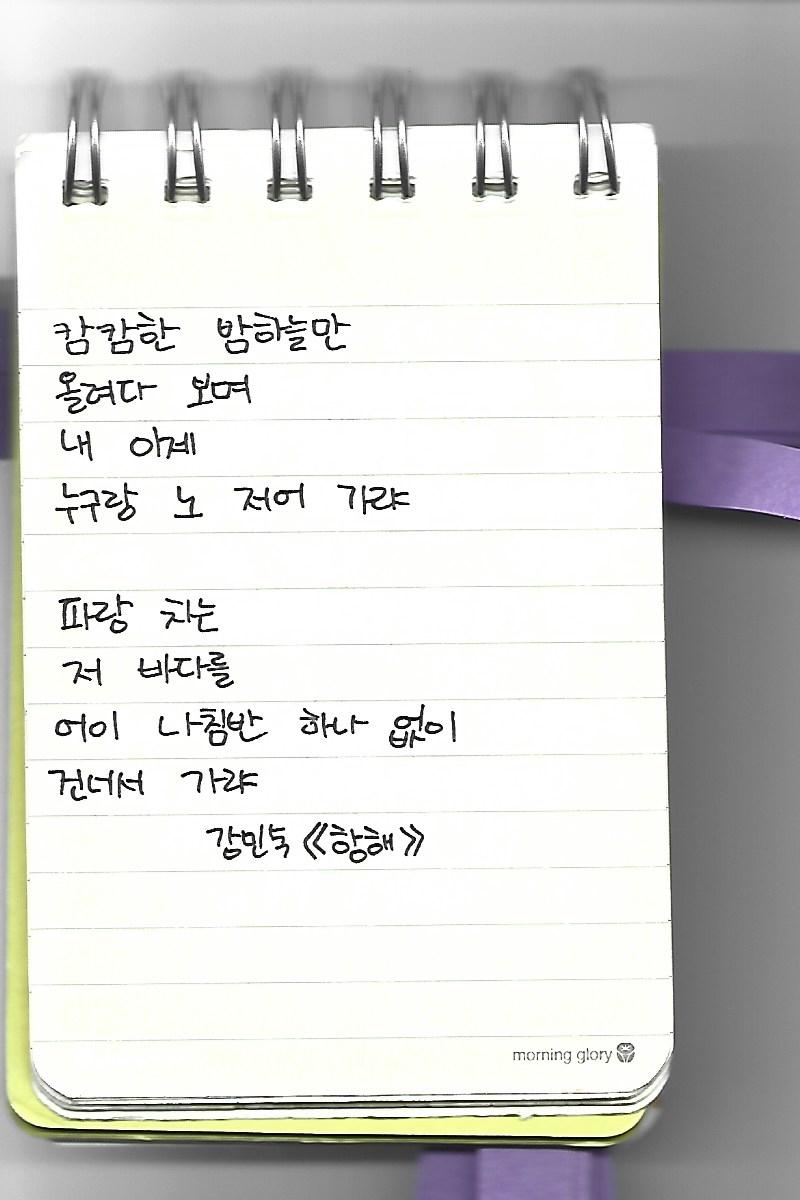 캄캄한 밤하늘만
올려다 보며
내 이제
누구랑 노 저어 가랴
파랑 치는
저 바다를
어이 나침반 하나 없이
건너서 가랴
강민숙 《항해》
morning glory